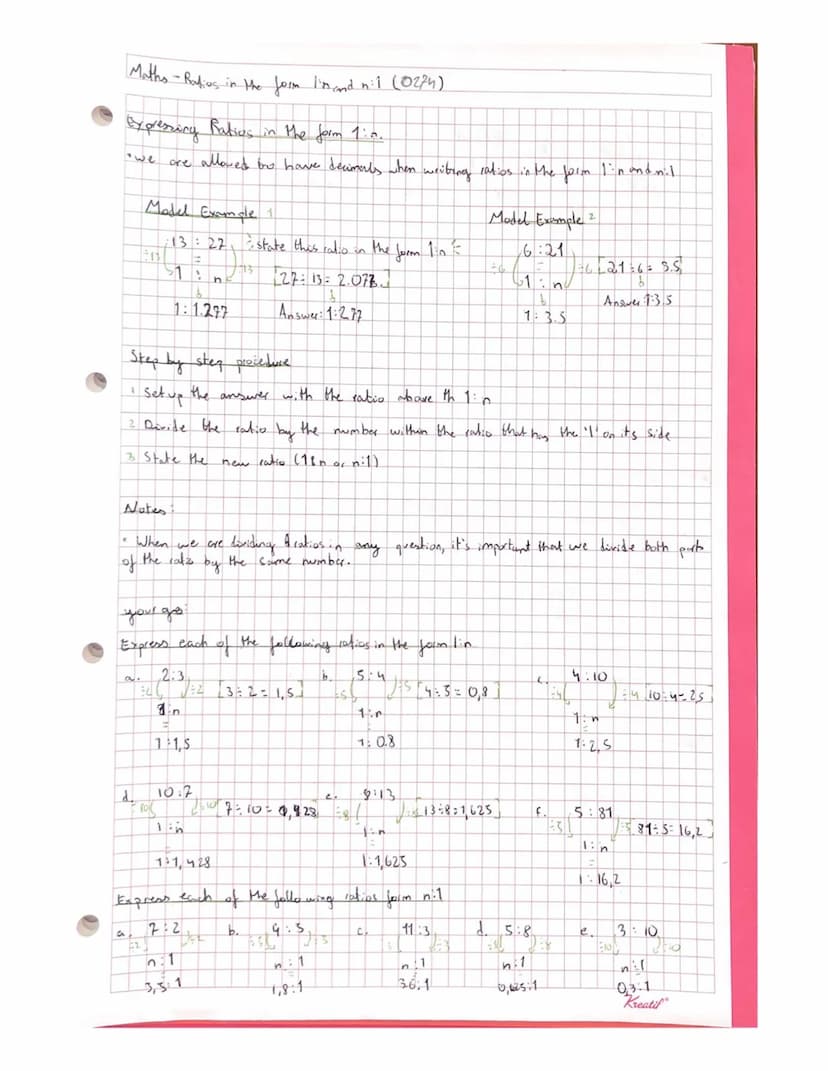 Maths - Ratios in the form 1:n and n:1 (0274)
Expressing Ratios in the form 1:n.
• we are allowed to have decimals when writing ratios in the form 1:n and n:1
Model Example 1 Model Example 2
13 : 27 state this ratio in the form 1:n 6:21
÷13 = ÷13 ÷6 = ÷6 [21÷6= 3.5]
1 : n [27÷13= 2.077.] 1:n
1:1.277 Answer: 1:277 1:3.5 Answer 1:3.5
Step by step procedure
1 Set up the answer with the ratio above th 1:n
2 Divide the ratio by the number within the ratio that has the '1' on its side
3 State the new ratio (1:n or n:1)
Notes:
• When we are dividing ratios in any question, it's important that we divide both part
of the ratio by the same number.
your go:
Express each of the following ratios in the form 1:n
a. 2:3 b. 5:4 c. 4:10
÷2 ÷2 [3÷2=1,5] ÷5 ÷5 [4÷5=0,8] ÷4 ÷4 [10÷4=2,5]
1:n 1:n 1:n
= = =
1:1,5 1:0.8 1:2,5
d. 10:7 e. 8:13 f. 5:81
÷10 ÷10 [7÷10= ÷8 ÷8 [13÷8=1,625] ÷5 ÷5 [81÷5=16,2]
1:n 1:n 1:n
= = =
1:1,428 1:1,625 1:16,2
Express each of the following ratios form n:1
a. 7:2 b. 9:5 c. 11:3 d. 5:8 e. 3:10
÷2 ÷2 ÷5 ÷5 ÷3 ÷8 ÷8 ÷10 ÷10
n:1 n:1 n:1 n:1 n:1
3,5:1 1,8:1 3.6:1 0,625:1 0,3:1
Kreatif